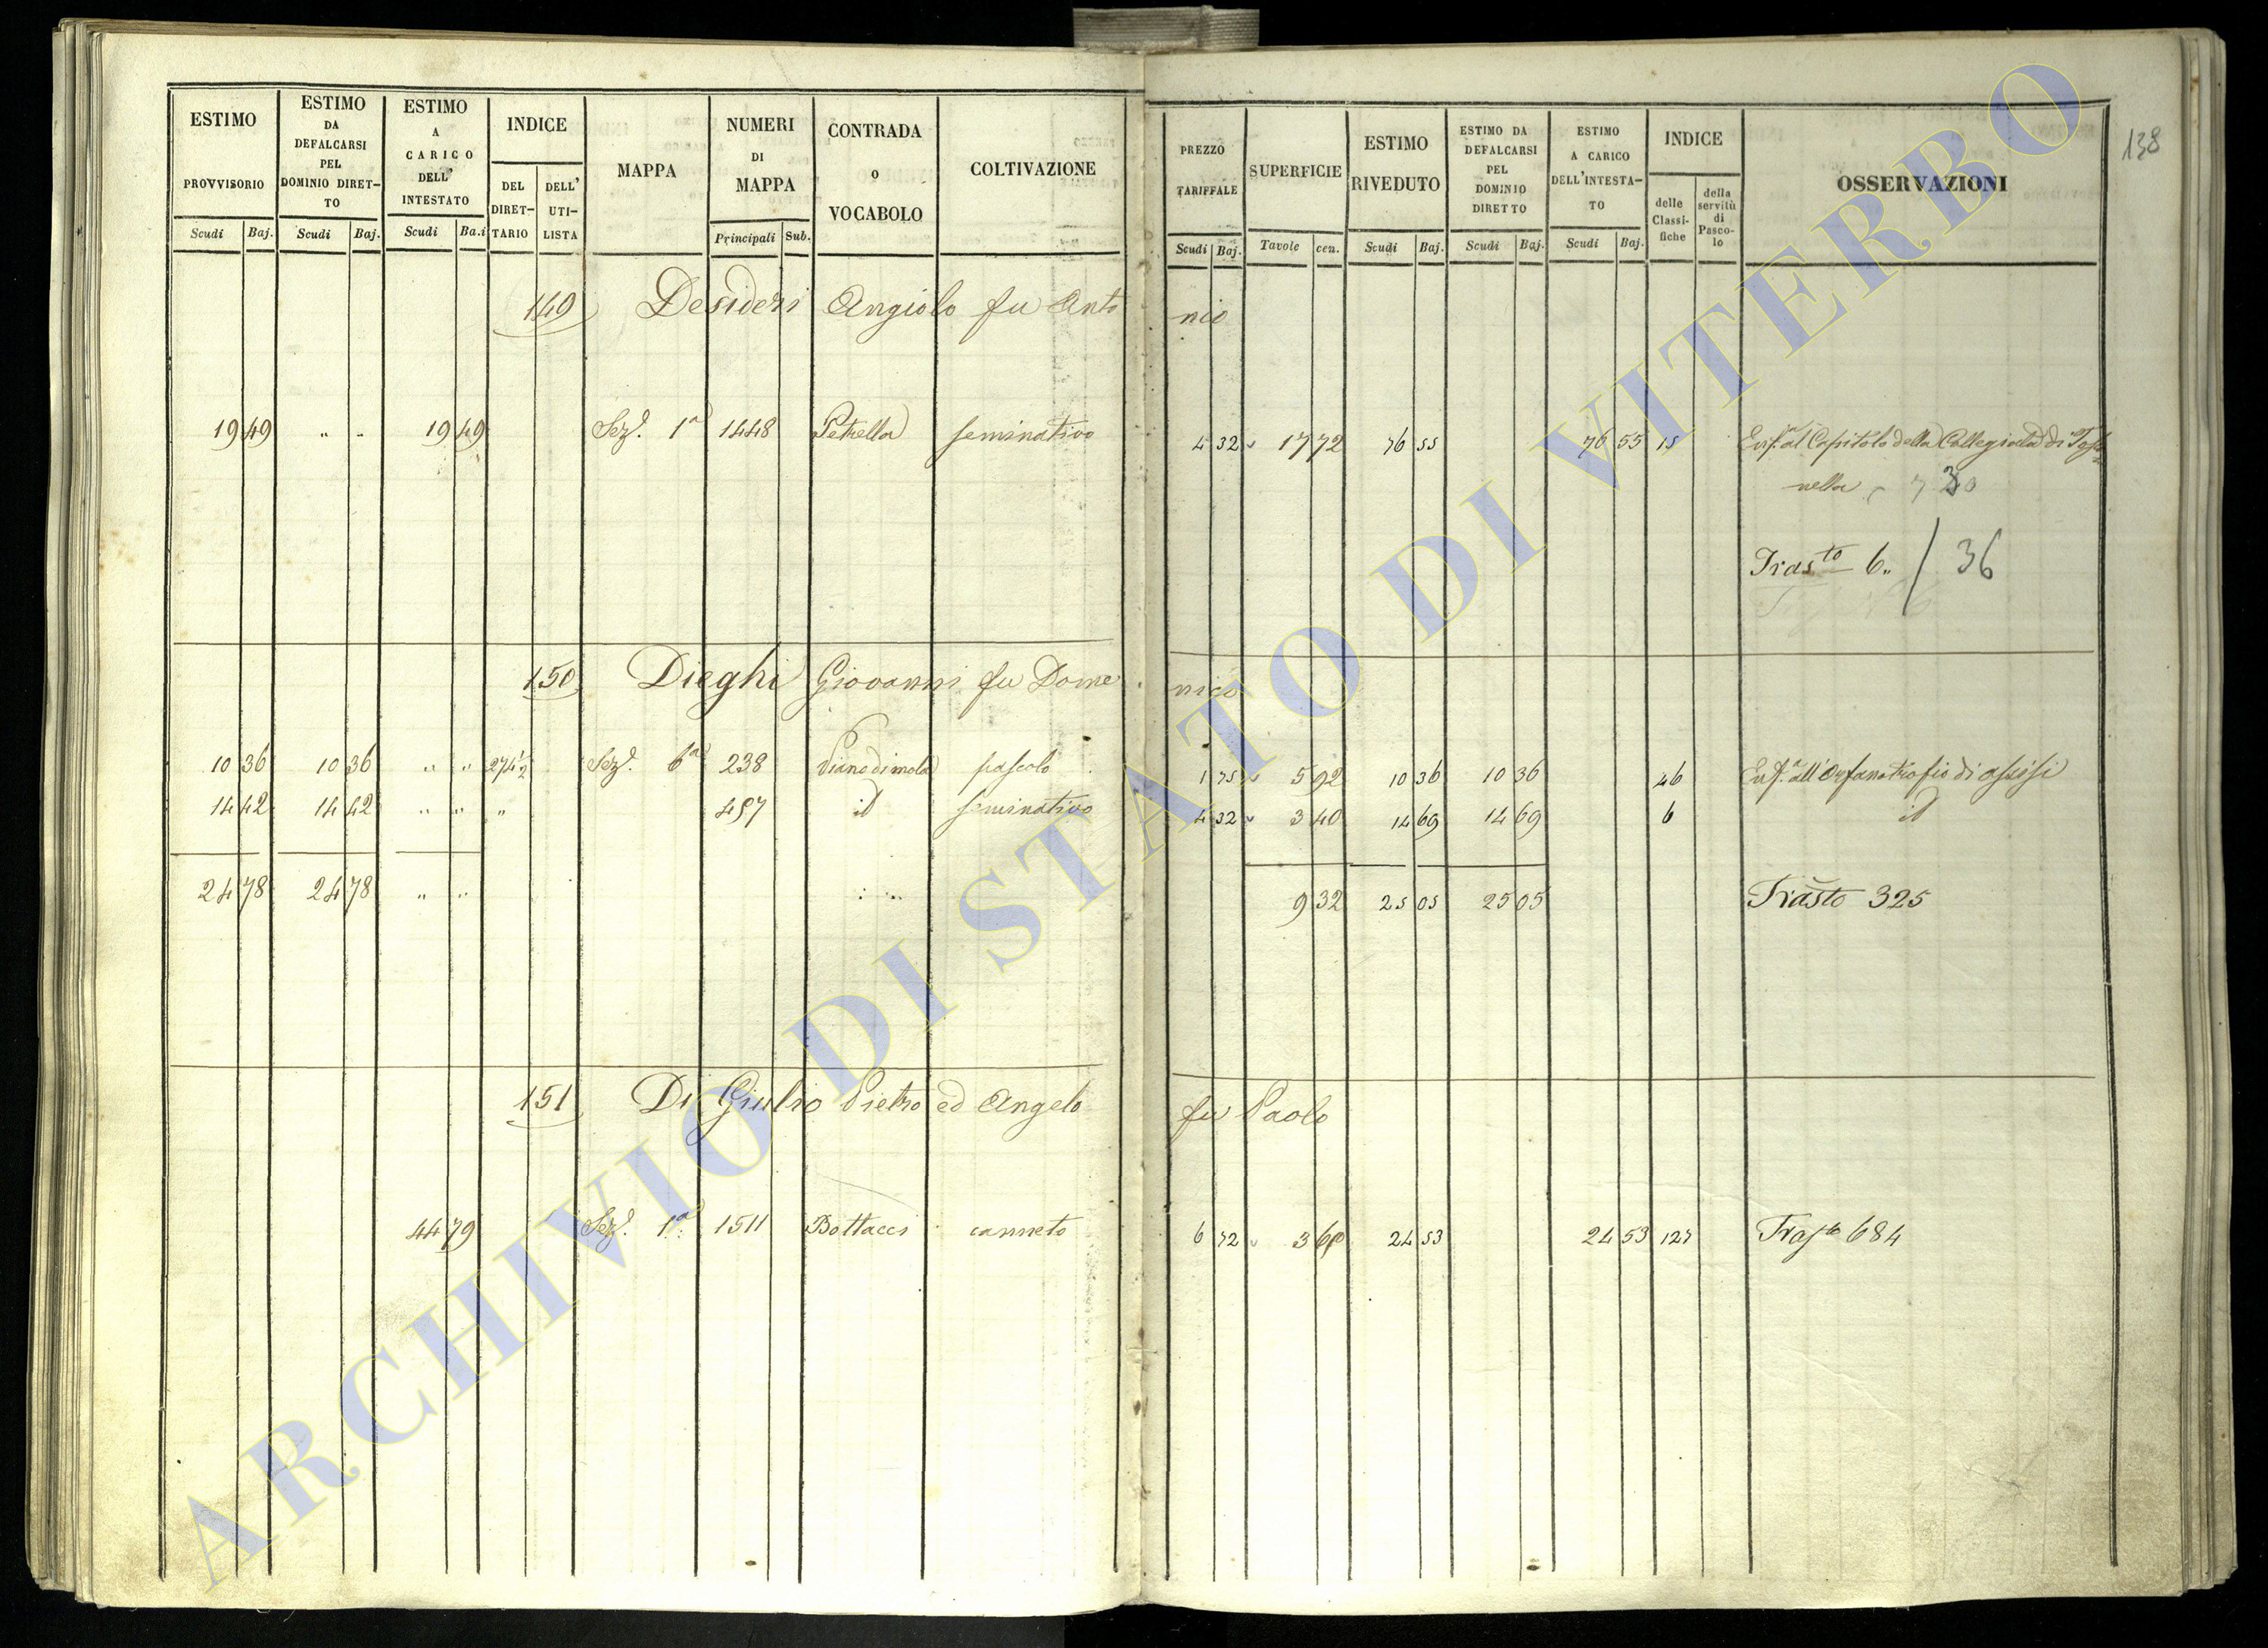 ESTIMO PROVVISORIO Scudi Baj.
ESTIMO DA DEFALCARSI PEL DOMINIO DIRET- TO Scudi Baj.
ESTIMO A CARICO DELL' INTESTATO Scudi Ba.i
INDICE DEL DIRET- TARIO DELL' UTI- LISTA
MAPPA
NUMERI DI MAPPA Principali Sub.
CONTRADA O VOCABOLO
COLTIVAZIONE
PREZZO TARIFFALE Scudi Baj.
SUPERFICIE Tavole cen.
ESTIMO RIVEDUTO Scudi Baj.
ESTIMO DA DEFALCARSI PEL DOMINIO DIRETTO Scudi Baj.
ESTIMO A CARICO DELL'INTESTA- TO Scudi Baj.
INDICE delle Classi- fiche della servitù di Pasco- lo
OSSERVAZIONI
138
149 Desideri Angiolo fu Anto nio
19 49 " " 19 49 Sez.e 1a 1448 Petrella seminativo 4 32 17 72 76 55 76 55 15 Enf.a al Capitolo della Collegiata di Tosca
nella
Trasto 6 / 36
150 Dieghi Giovanni fu Dome nico
10 36 10 36 " " 274 1/2 Sez.e 6a 238 Piano di mola pascolo 1 75 5 92 10 36 10 36 46 Enf.a all'Orfanotrofio di assisi
14 42 14 42 " " " 457 id seminativo 4 32 3 40 14 69 14 69 6 id
24 78 24 78 " " 9 32 25 05 25 05 Trasto 325
151 Di Giulio Pietro ed Angelo fu Paolo
44 79 Sez.e 1a 1511 Bottacci canneto 6 72 3 65 24 53 24 53 127 Trasto 684
ARCHIVIO DI STATO DI VITERBO